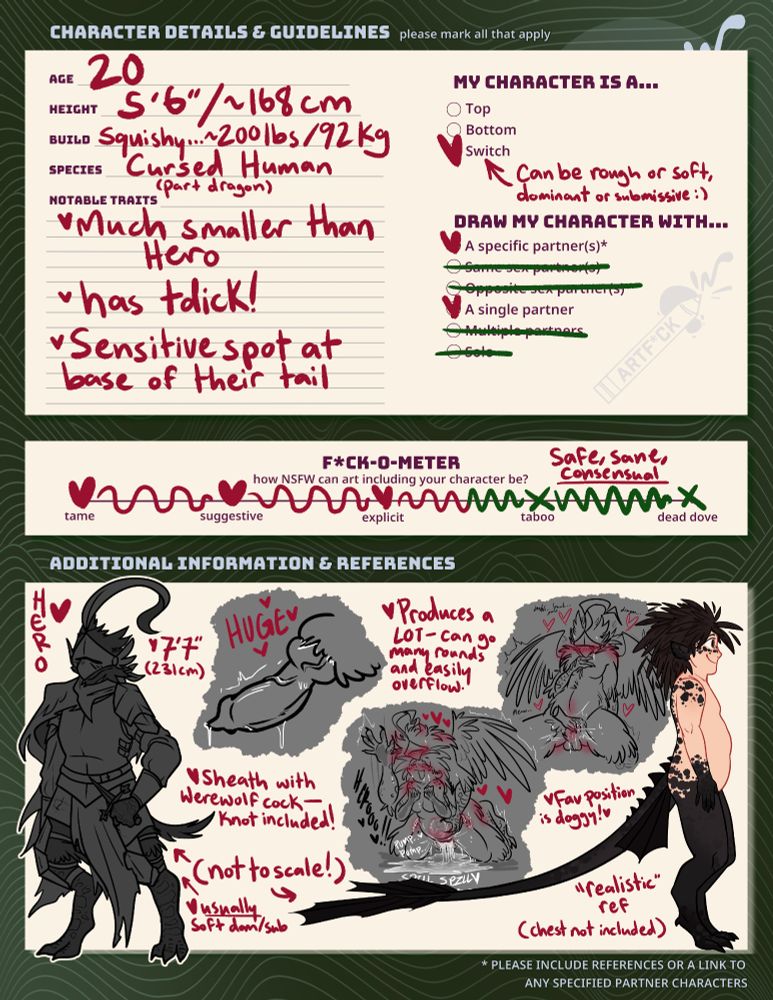 CHARACTER DETAILS & GUIDELINES please mark all that apply
AGE 20
HEIGHT 5'6"/~168cm
BUILD Squishy...~200lbs/92Kg
SPECIES Cursed Human
(part dragon)
NOTABLE TRAITS
Much smaller than
Hero
has tdick!
Sensitive spot at
base of their tail
MY CHARACTER IS A...
Top
Bottom
Switch
Can be rough or soft,
dominant or submissive :)
DRAW MY CHARACTER WITH...
A specific partner(s)*
Same sex partner(s)
Opposite sex partner(s)
A single partner
Multiple partners
Solo
ARTF*CK
F*CK-O-METER
how NSFW can art including your character be?
Safe, sane,
consensual
tame
suggestive
explicit
taboo
dead dove
ADDITIONAL INFORMATION & REFERENCES
HERO
7'7"
(231cm)
HUGE
Produces a
LOT - can go
many rounds
and easily
overflow.
Sheath with
Werewolf cock -
Knot included!
Fav position
is doggy!
Pump
Pump
(not to scale!)
usually
Soft dom/sub
"realistic"
ref
(chest not included)
* PLEASE INCLUDE REFERENCES OR A LINK TO
ANY SPECIFIED PARTNER CHARACTERS